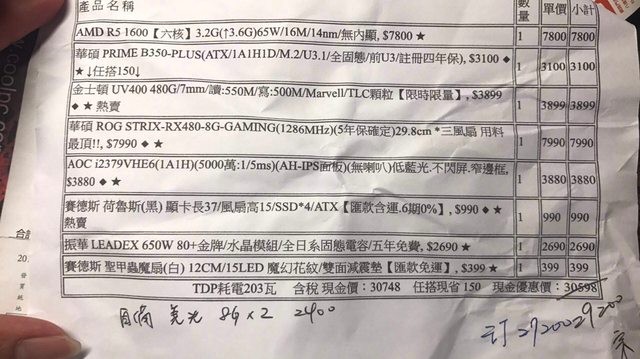 產品名稱 數量 單價 小計
AMD R5 1600【六核】3.2G(↑3.6G)65W/16M/14nm/無內顯, $7800 ★ 1 7800 7800
華碩 PRIME B350-PLUS(ATX/1A1H1D/M.2/U3.1/全固態/前U3/註冊四年保), $3100 ◆ 1 3100 3100
★↓任搭150↓
金士頓 UV400 480G/7mm/讀:550M/寫:500M/Marvell/TLC顆粒【限時限量】, $3899 1 3899 3899
◆ ★ 熱賣
華碩 ROG STRIX-RX480-8G-GAMING(1286MHz)(5年保確定)29.8cm *三風扇 用料 1 7990 7990
最頂!!, $7990 ◆ ★
AOC i2379VHE6(1A1H)(5000萬:1/5ms)(AH-IPS面板)(無喇叭)低藍光.不閃屏.窄邊框, 1 3880 3880
$3880 ◆ ★
賽德斯 荷魯斯(黑) 顯卡長37/風扇高15/SSD*4/ATX【匯款含運.6期0%】, $990 ◆ ★ 1 990 990
熱賣
振華 LEADEX 650W 80+金牌/水晶模組/全日系固態電容/五年免費, $2690 ★ 1 2690 2690
賽德斯 聖甲蟲魔扇(白) 12CM/15LED 魔幻花紋/雙面減震墊【匯款免運】, $399 ★ 1 399 399
TDP耗電203瓦 含稅 現金價: 30748 任搭現省 150 現金優惠價: 30598
自備 美光 8G×2 2400
29200
訂 29200
coolpc
合計
20